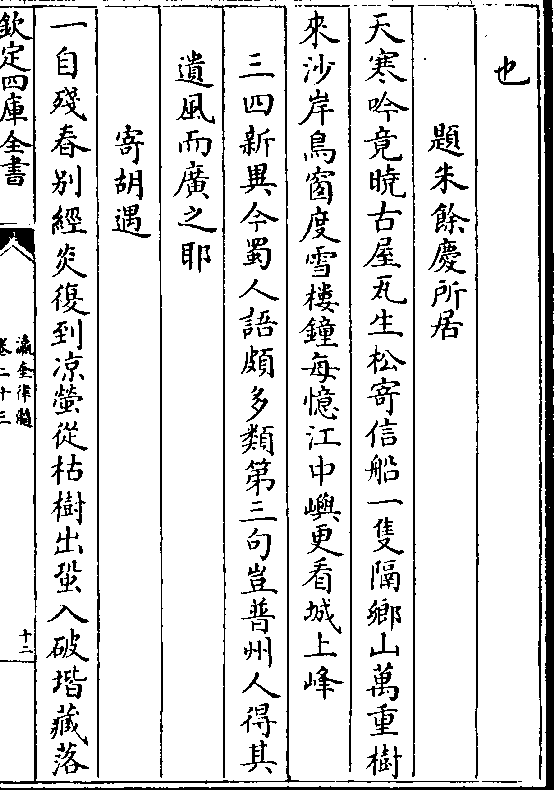 也
題朱餘慶所居
天寒吟竟曉古屋瓦生松寄信船一隻隔鄉山萬重樹
來沙岸鳥窗度雪樓鐘每憶江中嶼更看城上峰
三四新異今蜀人語頗多類第三句豈普州人得其
遺風而廣之耶
寄胡遇
一自殘春别經炎復到凉螢從枯樹出蛩入破堦藏落
欽定四庫全書
瀛奎律髓
卷二十三
十二